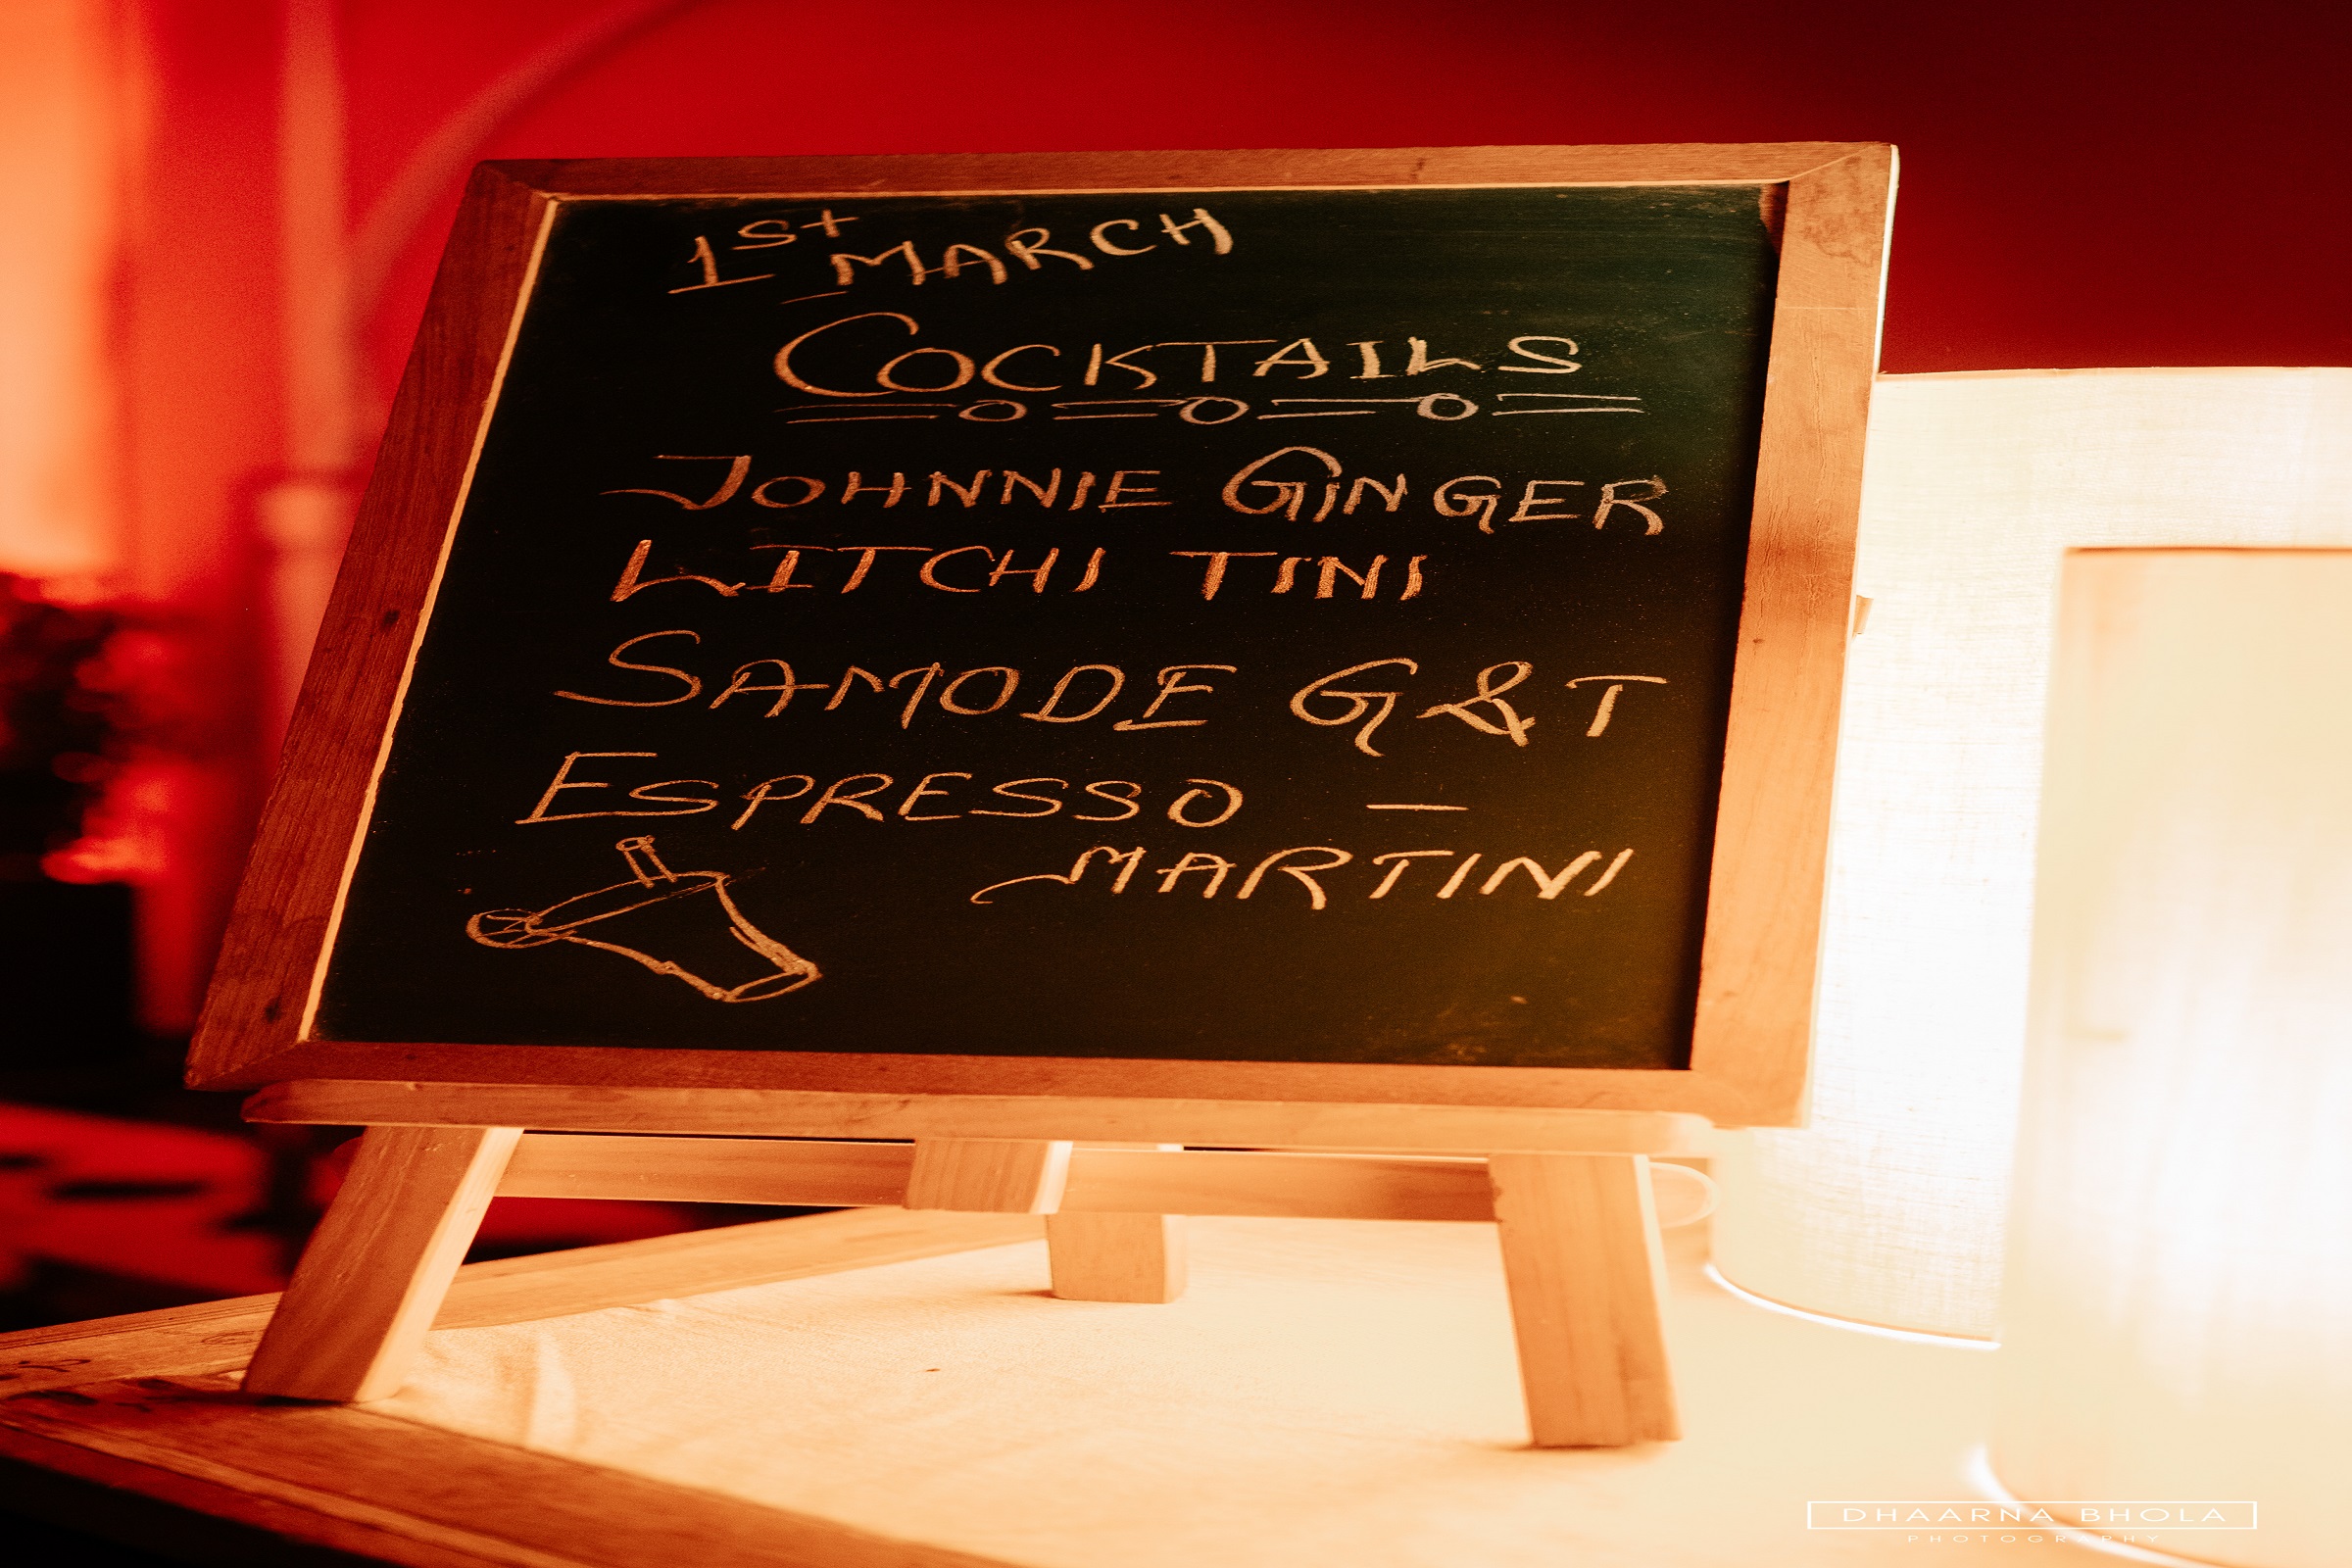 1st MARCH
COCKTAILS
JOHNNIE GINGER
LITCHI TINI
SAMODE G&T
ESPRESSO —
MARTINI
DHAARNA BHOLA
PHOTOGRAPHY